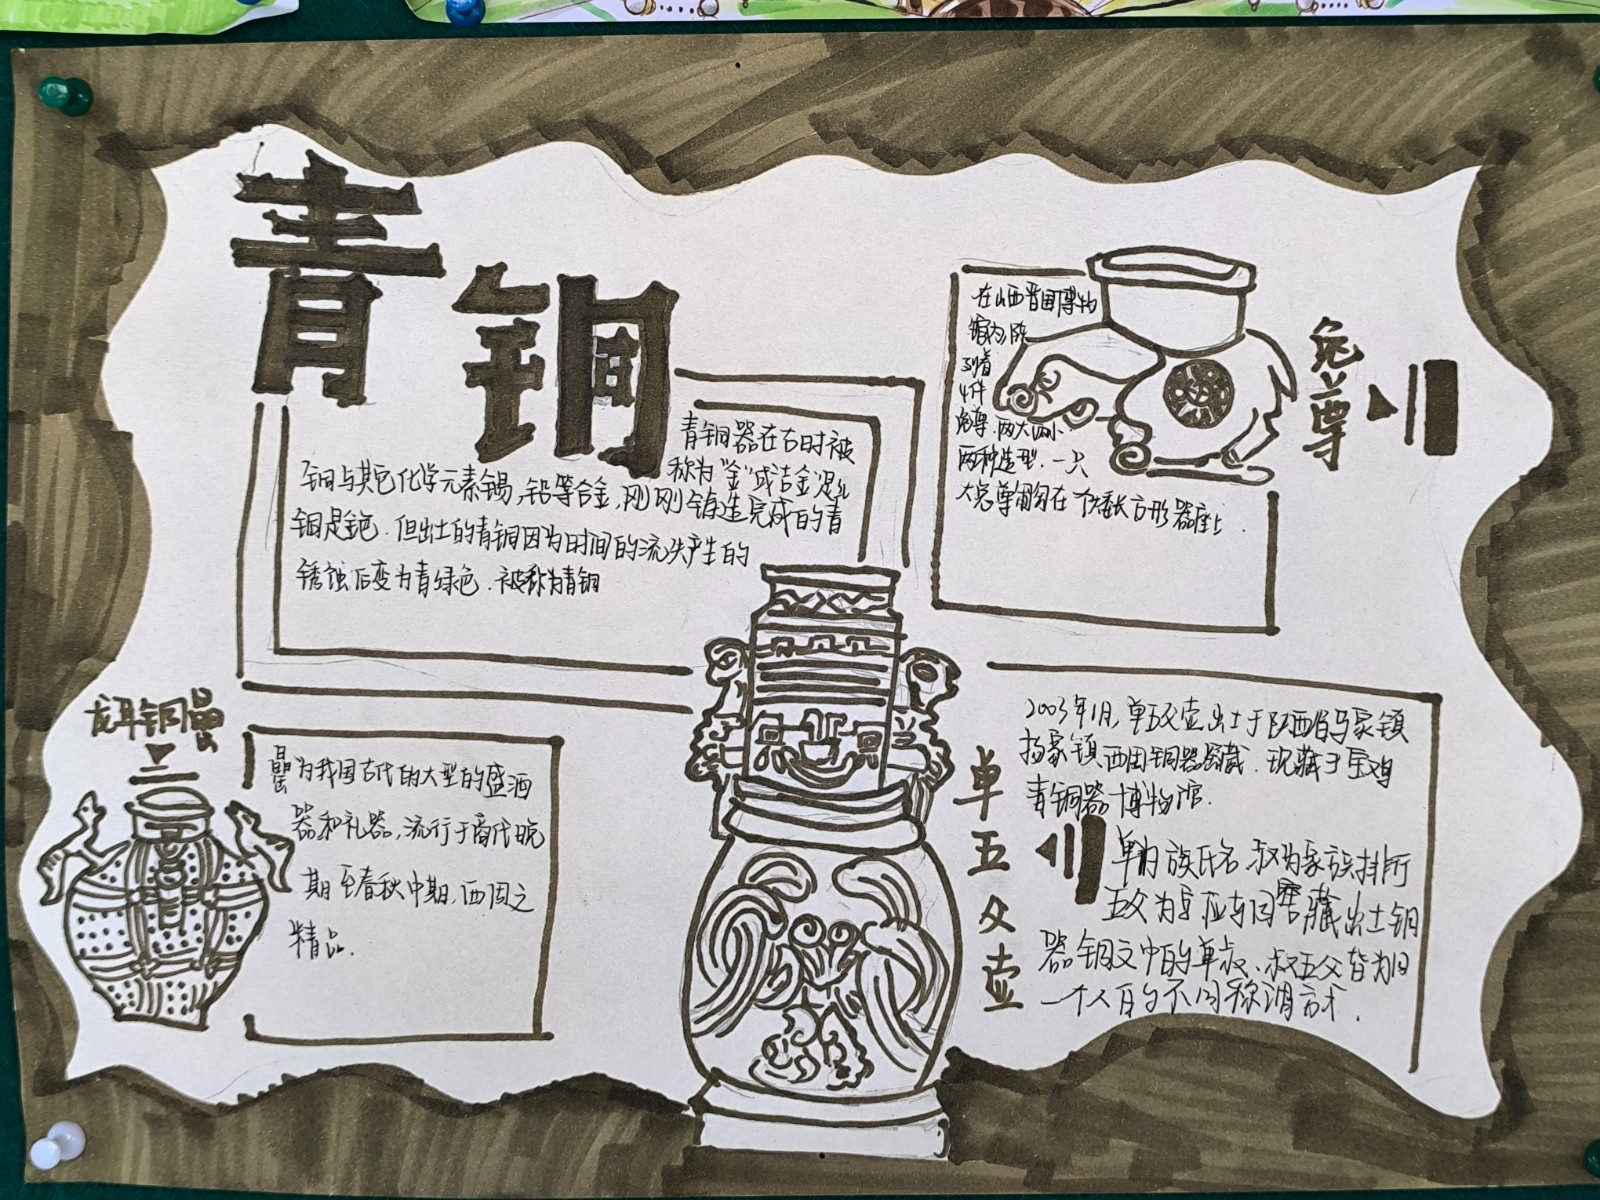 青铜
青铜器在古时被
称为"金"或吉金"是
铜与其它化学元素锡,铅等合金,刚刚铸造完成的青
铜是金色.但出土的青铜因为时间的流失产生的
锈蚀后变为青绿色.被称为青铜
在山西晋国博物
馆内,陈
列着
4件
兔尊.两大两小.
两种造型.一只
大兔尊匍匐在一个矮长方形器座上.
兔尊
龙耳铜罍
罍为我国古代的大型的盛酒
器和礼器,流行于商代晚
期至春秋中期.西周之
精品.
单五父壶
2003年1月,单五父壶出土于陕西省马家镇
杨家镇西周铜器窖藏.现藏于宝鸡
青铜器博物馆.
单为族氏名.叔为家族排所
五父为字.应与同窖藏出土铜
器铜文中的单叔、叔五父皆为同
一个人的不同称谓方式.